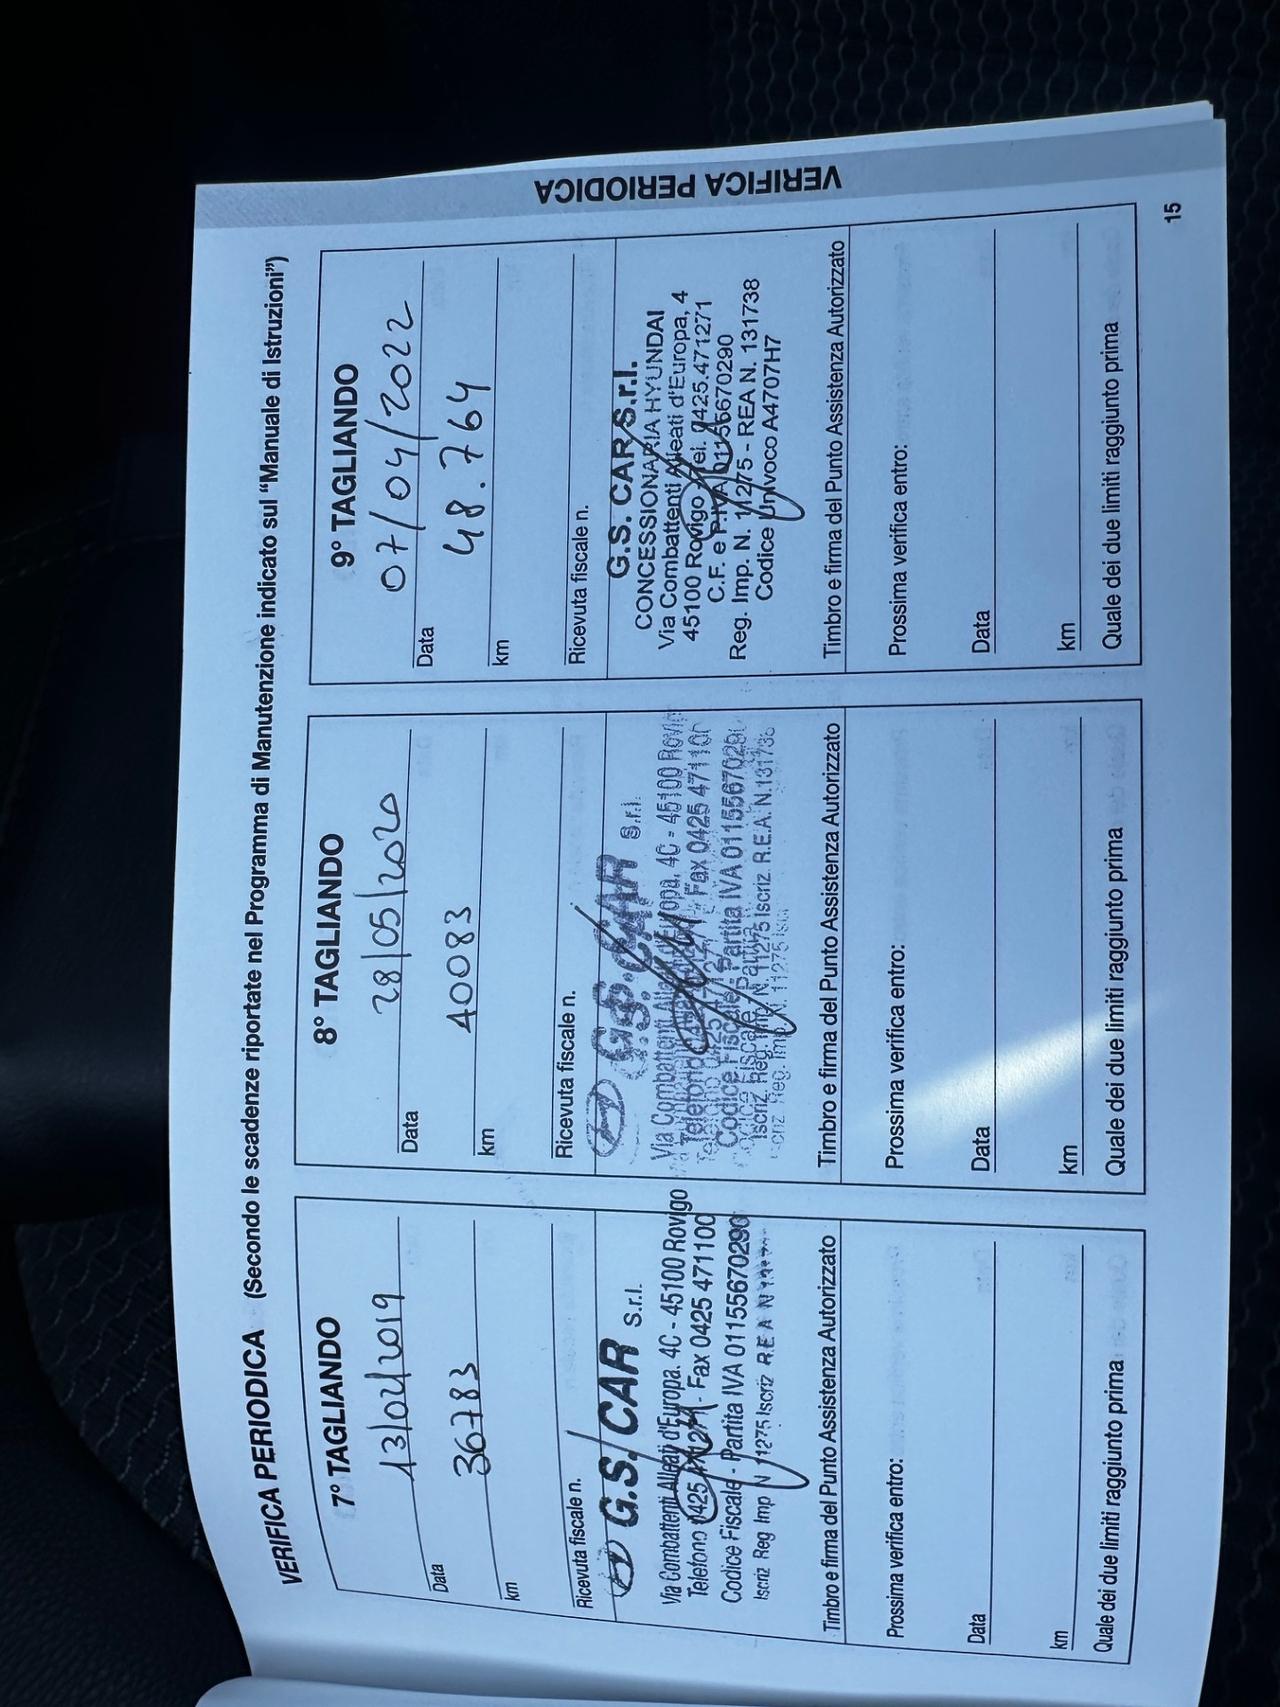 VERIFICA PERIODICA (Secondo le scadenze riportate nel Programma di Manutenzione indicato sul "Manuale di Istruzioni")
7° TAGLIANDO
Data 13/02/2019
km 36783
Ricevuta fiscale n.
G.S. CAR S.r.l.
Via Combattenti Alleati d'Europa. 4C - 45100 Rovigo
Telefono 0425 - Fax 0425 471100
Codice Fiscale - Partita IVA 01155670290
Iscriz Reg Imp N 11275 Iscriz R.E.A N
Timbro e firma del Punto Assistenza Autorizzato
Prossima verifica entro:
Data
km
Quale dei due limiti raggiunto prima
8° TAGLIANDO
Data 28/05/2020
km 40083
Ricevuta fiscale n.
G.S. CAR S.r.l.
Via Combattenti Alleati d'Europa, 4C - 45100 Rovigo
Telefono Fax 0425 471100
Codice Fiscale - Partita IVA 01155670290
Iscriz. Reg. Imp. N. 11275 Iscriz. R.E.A. N.131738
Timbro e firma del Punto Assistenza Autorizzato
Prossima verifica entro:
Data
km
Quale dei due limiti raggiunto prima
9° TAGLIANDO
Data 07/04/2022
km 48.764
Ricevuta fiscale n.
G.S. CAR S.r.l.
CONCESSIONARIA HYUNDAI
Via Combattenti Alleati d'Europa, 4
45100 Rovigo Tel. 0425.471271
C.F. e P.IVA 01155670290
Reg. Imp. N. 11275 - REA N. 131738
Codice Univoco A4707H7
Timbro e firma del Punto Assistenza Autorizzato
Prossima verifica entro:
Data
km
Quale dei due limiti raggiunto prima
VERIFICA PERIODICA
15